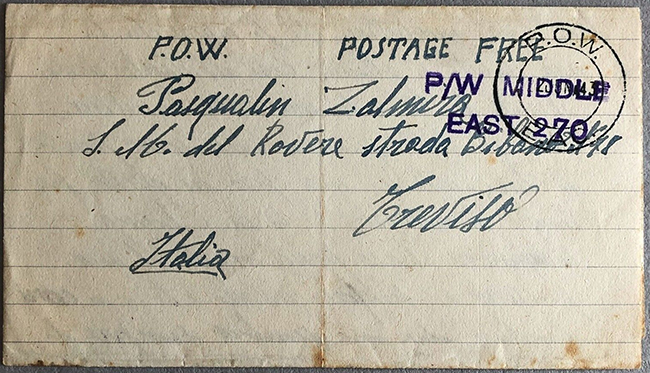 P.O.W. POSTAGE FREE
P.O.W.
P/W MIDDLE
EAST 270
Pasqualin Zalmira
S. M. del Rovere strada
Treviso
Italia